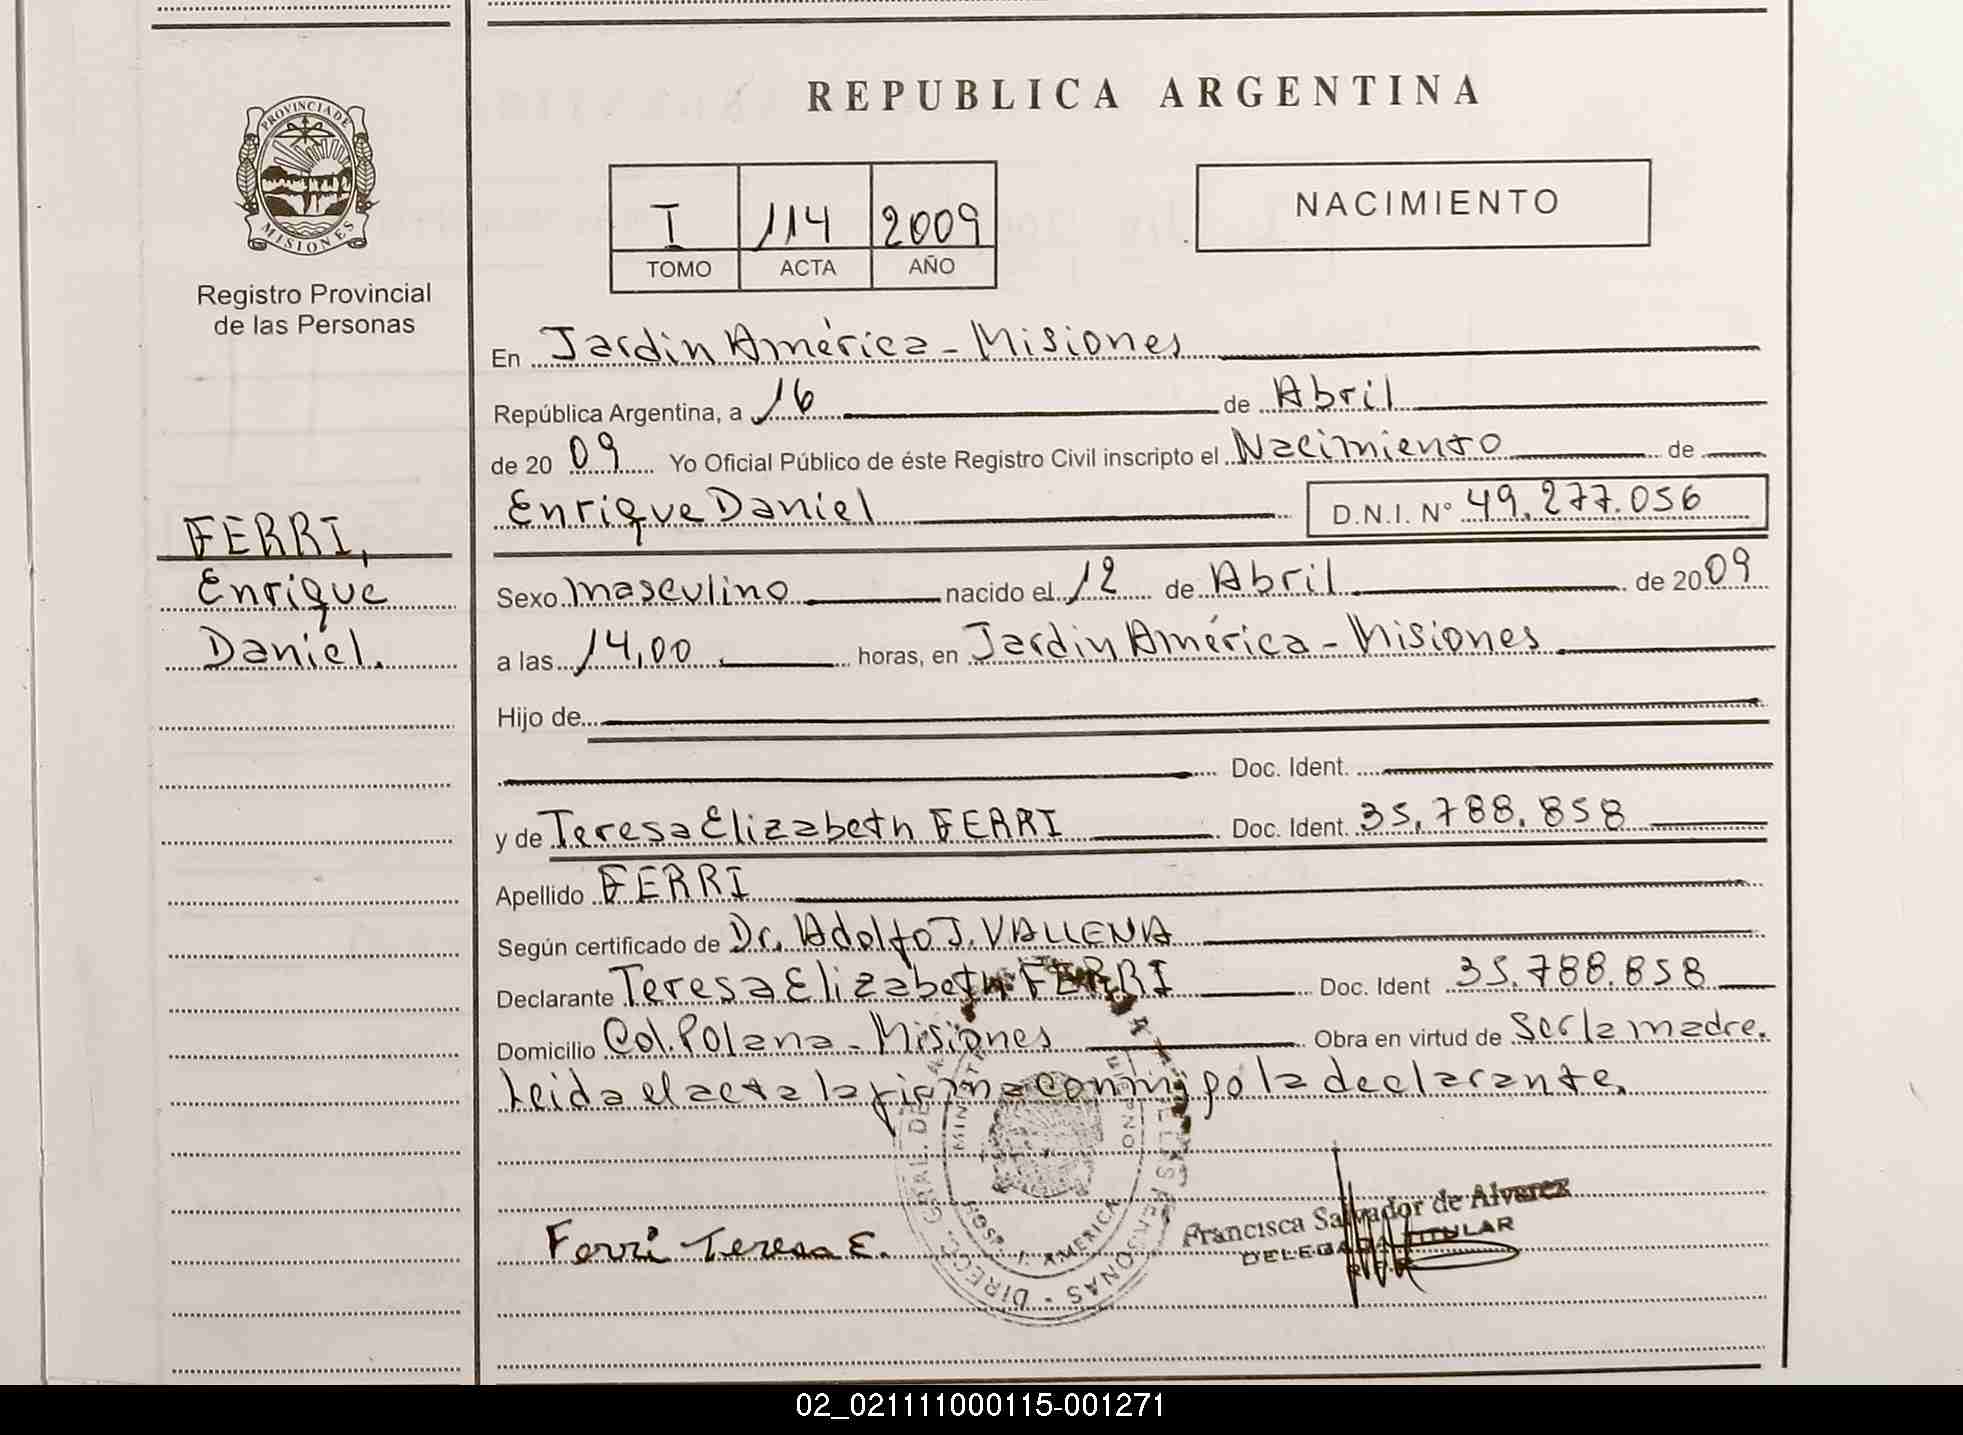 REPUBLICA ARGENTINA
PROVINCIA DE
MISIONES
Registro Provincial
de las Personas
I 114 2009
TOMO ACTA AÑO
NACIMIENTO
En Jardin América - Misiones
República Argentina, a 16 de Abril
de 2009 Yo Oficial Público de éste Registro Civil inscripto el Nacimiento de
Enrique Daniel D.N.I. N° 49.277.056
FERRI,
Enrique
Daniel.
Sexo masculino nacido el 12 de Abril de 2009
a las 14,00 horas, en Jardin América - Misiones
Hijo de
Doc. Ident.
y de Teresa Elizabeth FERRI Doc. Ident. 35.788.858
Apellido FERRI
Según certificado de Dr. Adolfo J. VALLENA
Declarante Teresa Elizabeth FERRI Doc. Ident 35.788.858
Domicilio Col. Polana - Misiones Obra en virtud de Ser la madre.
Leida el acta la firma conmigo la declarante.
HOSP. J. AMERICA
Ferri Teresa E.
Francisca Salvador de Alvarez
DELEGADA TITULAR
02_021111000115-001271